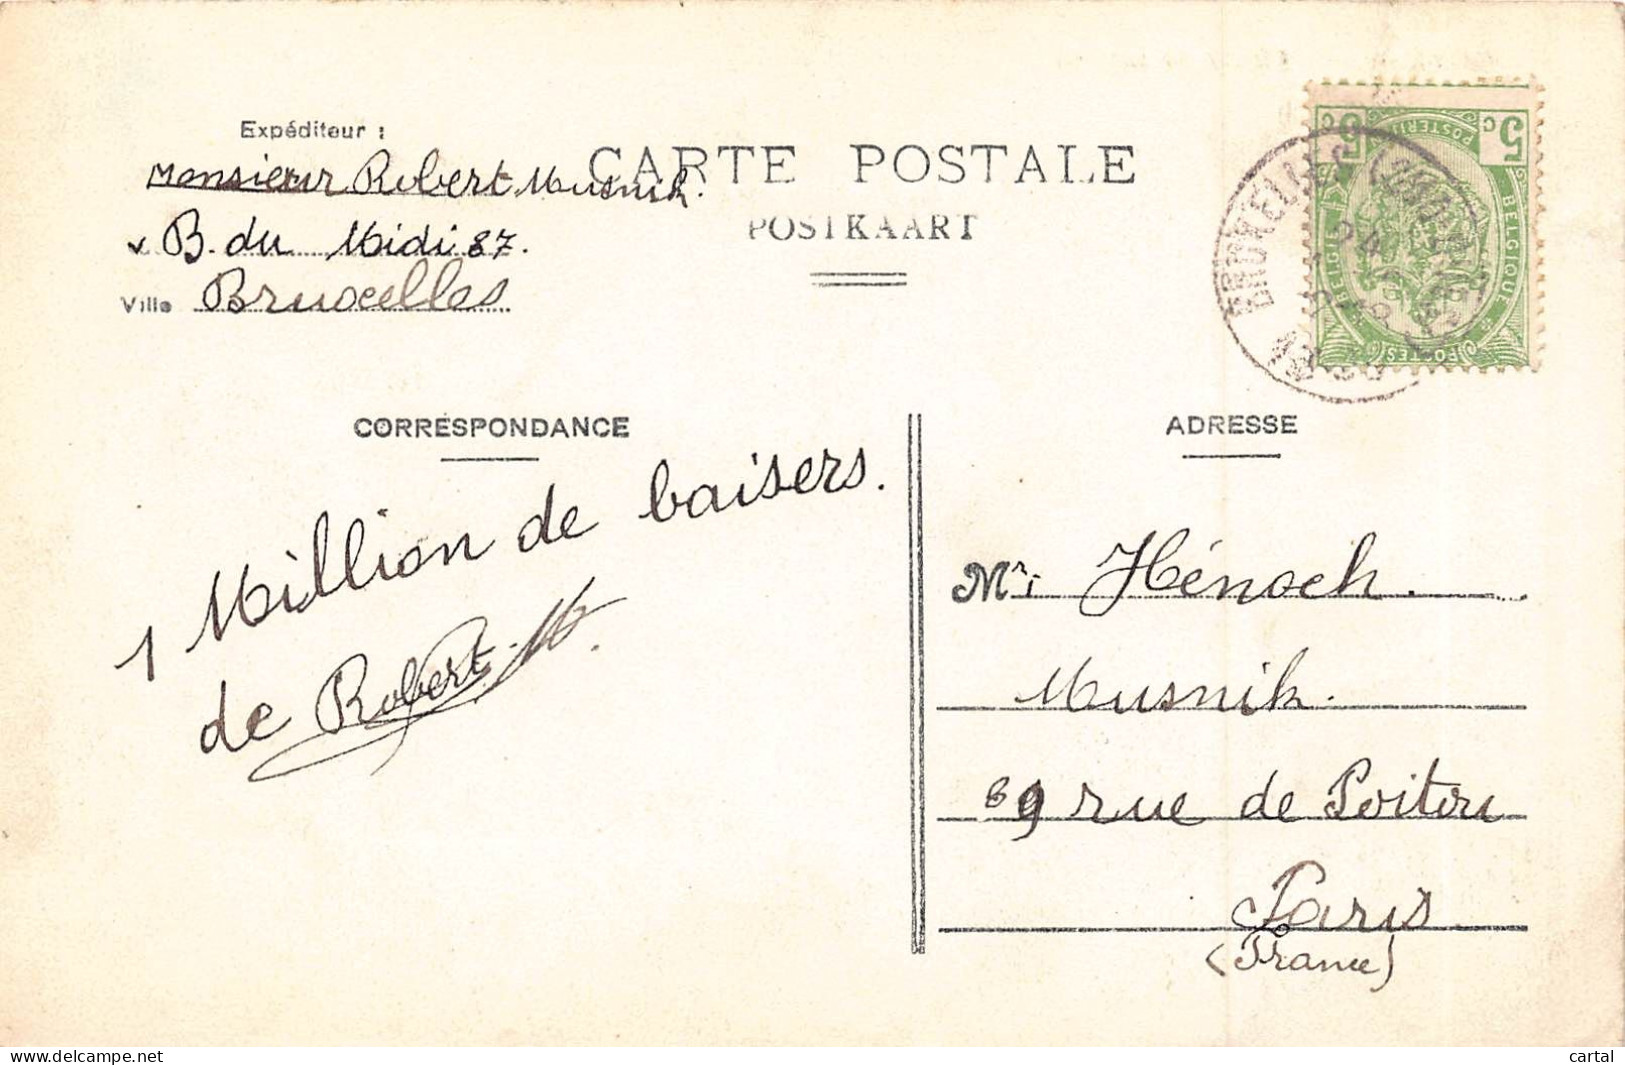 Expéditeur :
Monsieur Robert Musnik.
B. du Midi 87.
Ville Bruxelles
CARTE POSTALE
POSTKAART
5 c 5 c
POSTERIJEN
BELGIQUE
BELGIË
POSTES
BRUXELLES
CORRESPONDANCE
1 Million de baisers.
de Robert. M.
ADRESSE
Mr Hénoch.
Musnik.
89 rue de Poitou
Paris
(France)
www.delcampe.net
cartal